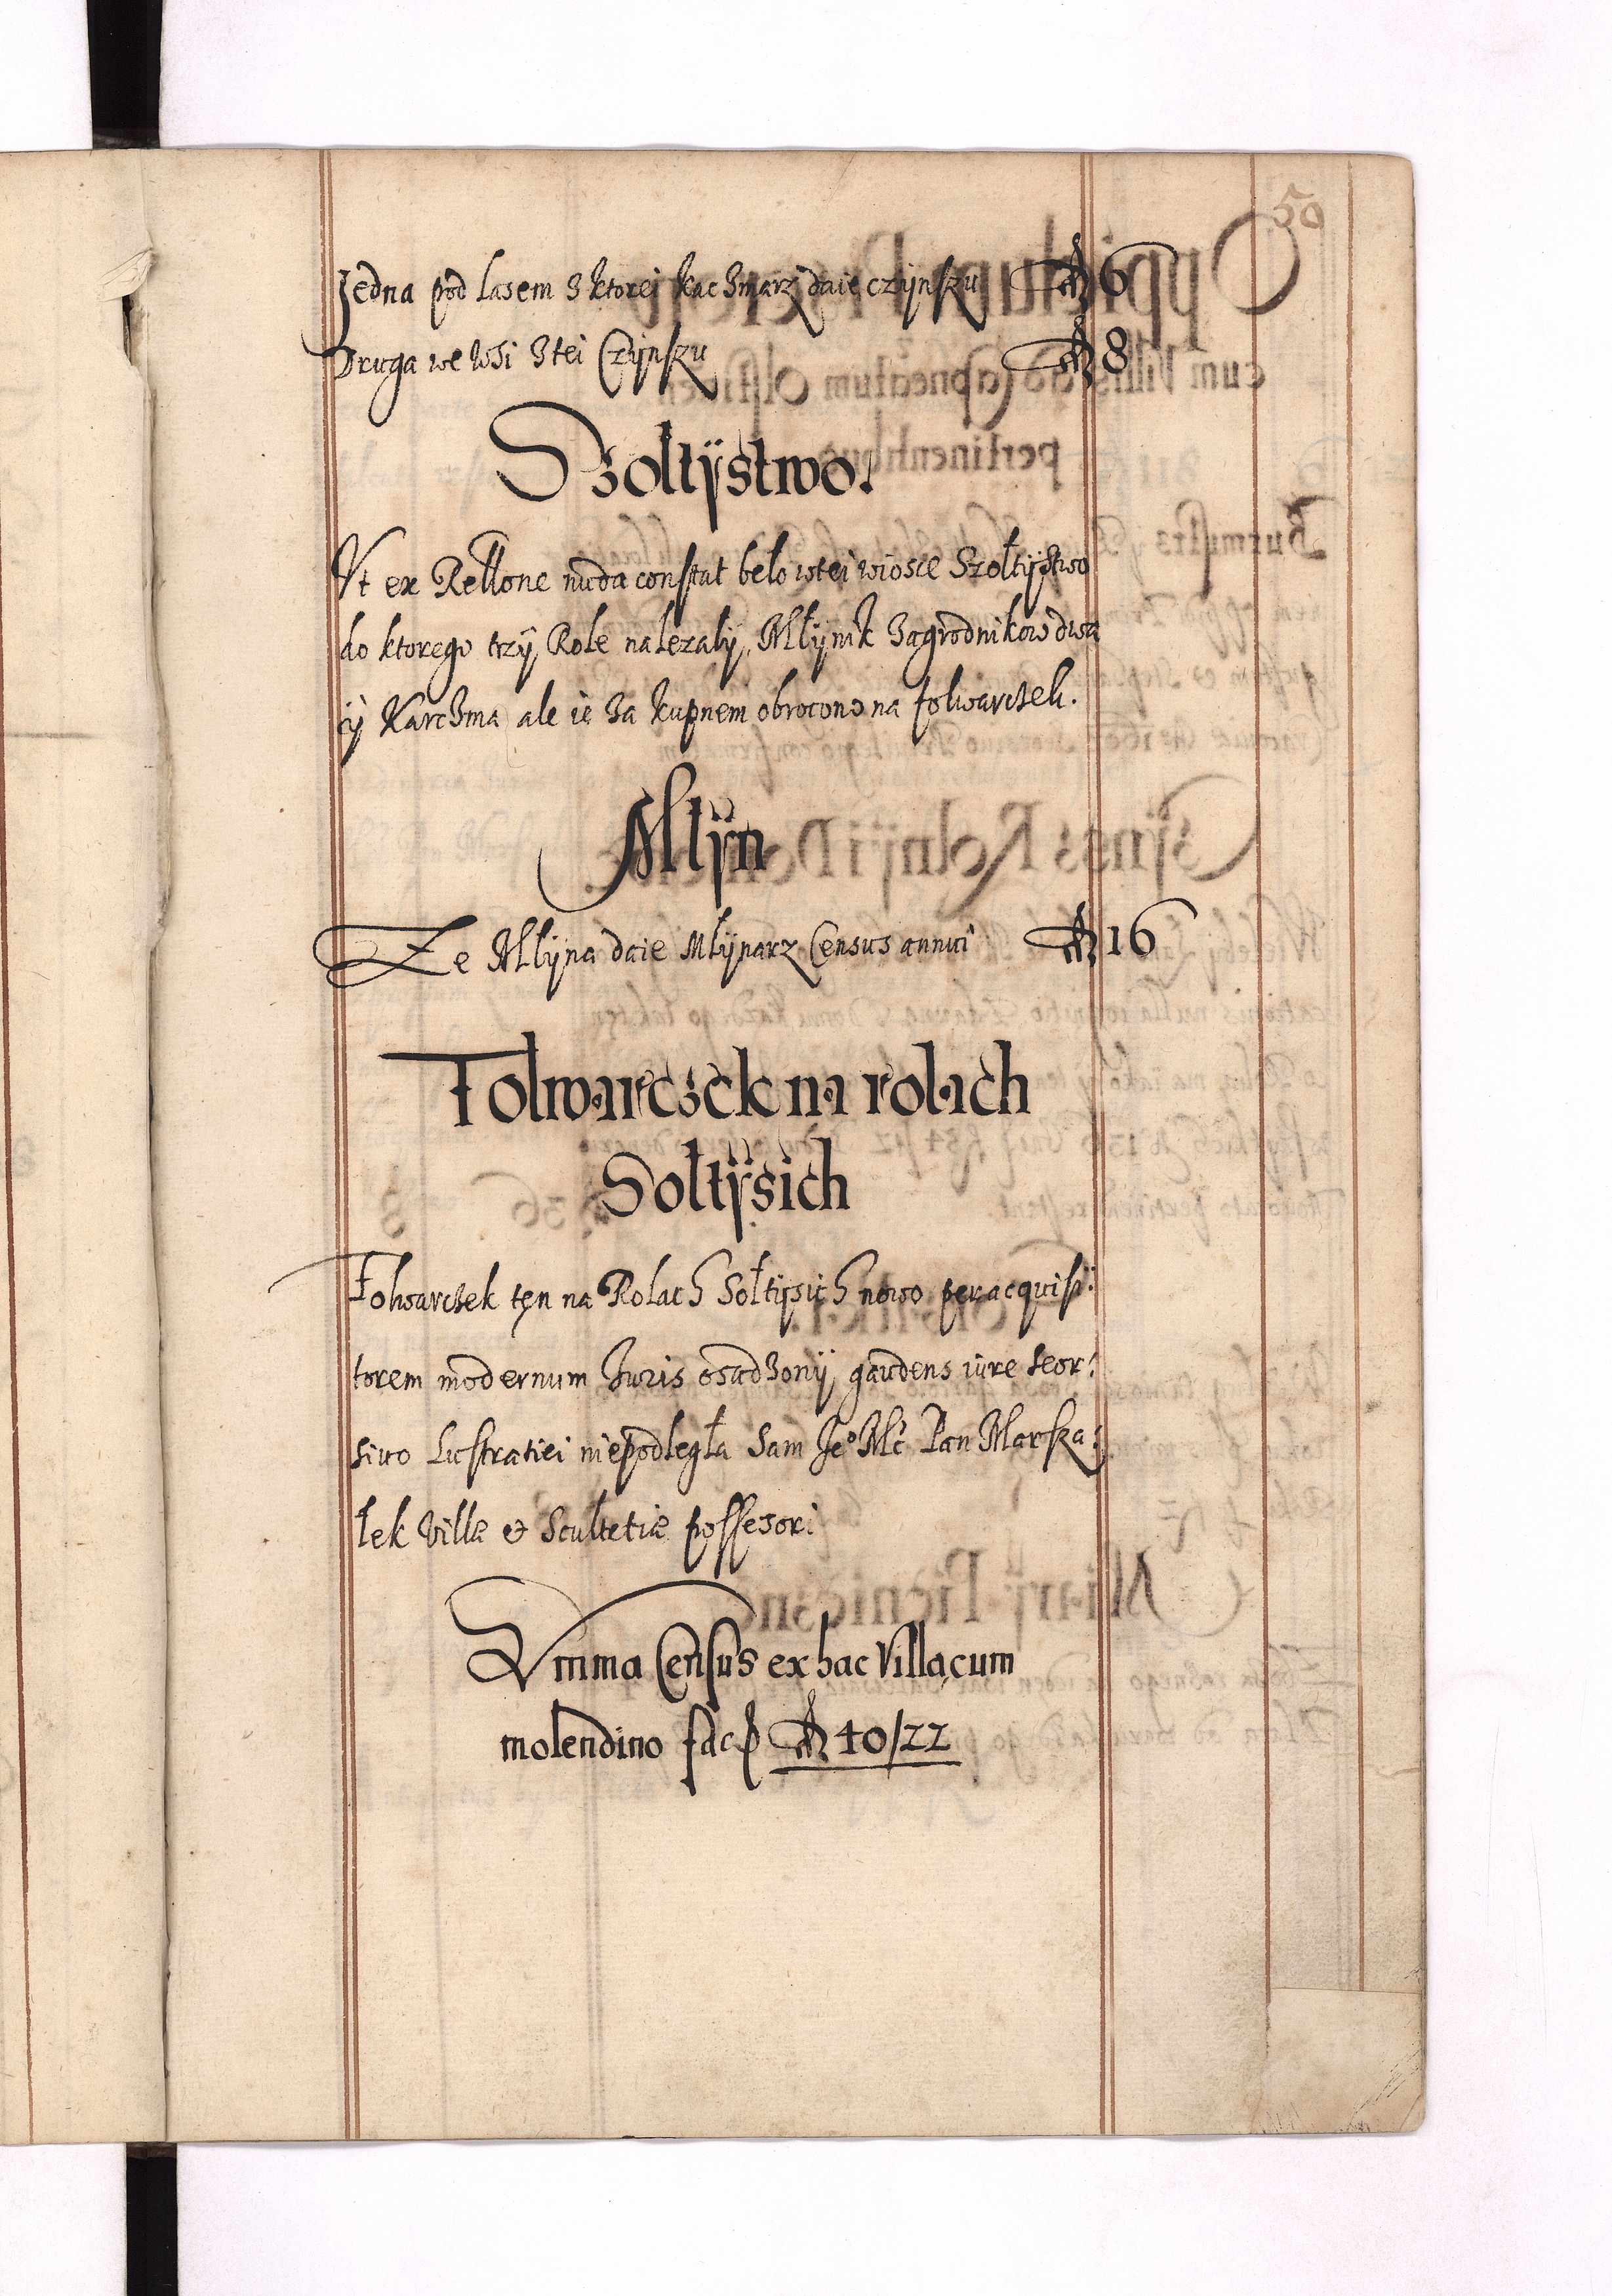 50
Jedna pod Lasem z ktorej kaczmarz daie czynszu fl 6
Druga we wsi z tei Czynszu fl 8
Szołtÿstwo.
Vt ex Rellone nuda constat beło wtei wiosce Szołtÿstwo
do ktorego trzÿ Role nalezałÿ, Młÿnik Zagrodnikow dwa
ÿ Karczma ale ie za kupnem obrocono na folwarczek.
Młÿn
Ze Młÿna daie Młÿnarz Census annui fl 16
Folwarczek na rolach
Sołtÿsich
Folwarczek ten na Rolach Sołtÿsich nowo per acquisi:
torem modernum Juris osadzonÿ, gaudens iure seor:
sivo Lustratiei niepodległ a Sam Je° Mć Pan Marsza:
łek Villæ & Scultetiæ possesori
Summa Census ex hac Villa cum
molendino facit fl 40/22